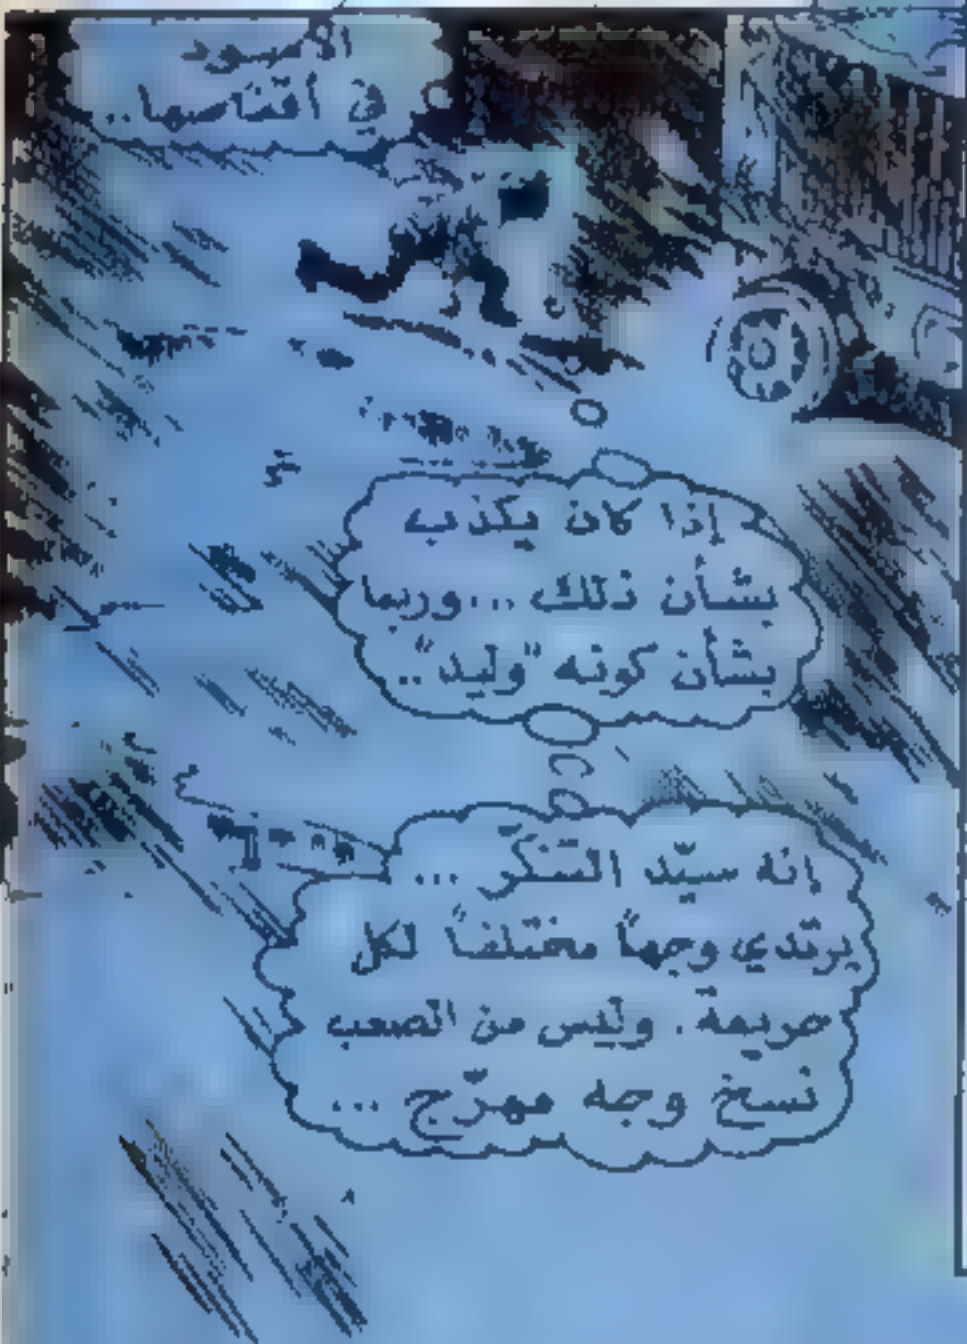 الأسود
في أقفاصها..
إذا كان يكذب
بشأن ذلك ...وربما
بشأن كونه "وليد"..
إنه سيّد التنكّر ...
يرتدي وجهاً مختلفاً لكل
جريمة . وليس من الصعب
نسخ وجه مهرّج ...